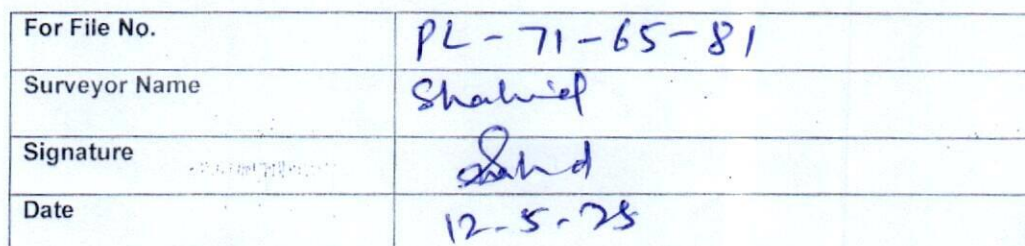 For File No. PL-71-65-81
Surveyor Name Shahid
Signature Shahid
Date 12-5-25